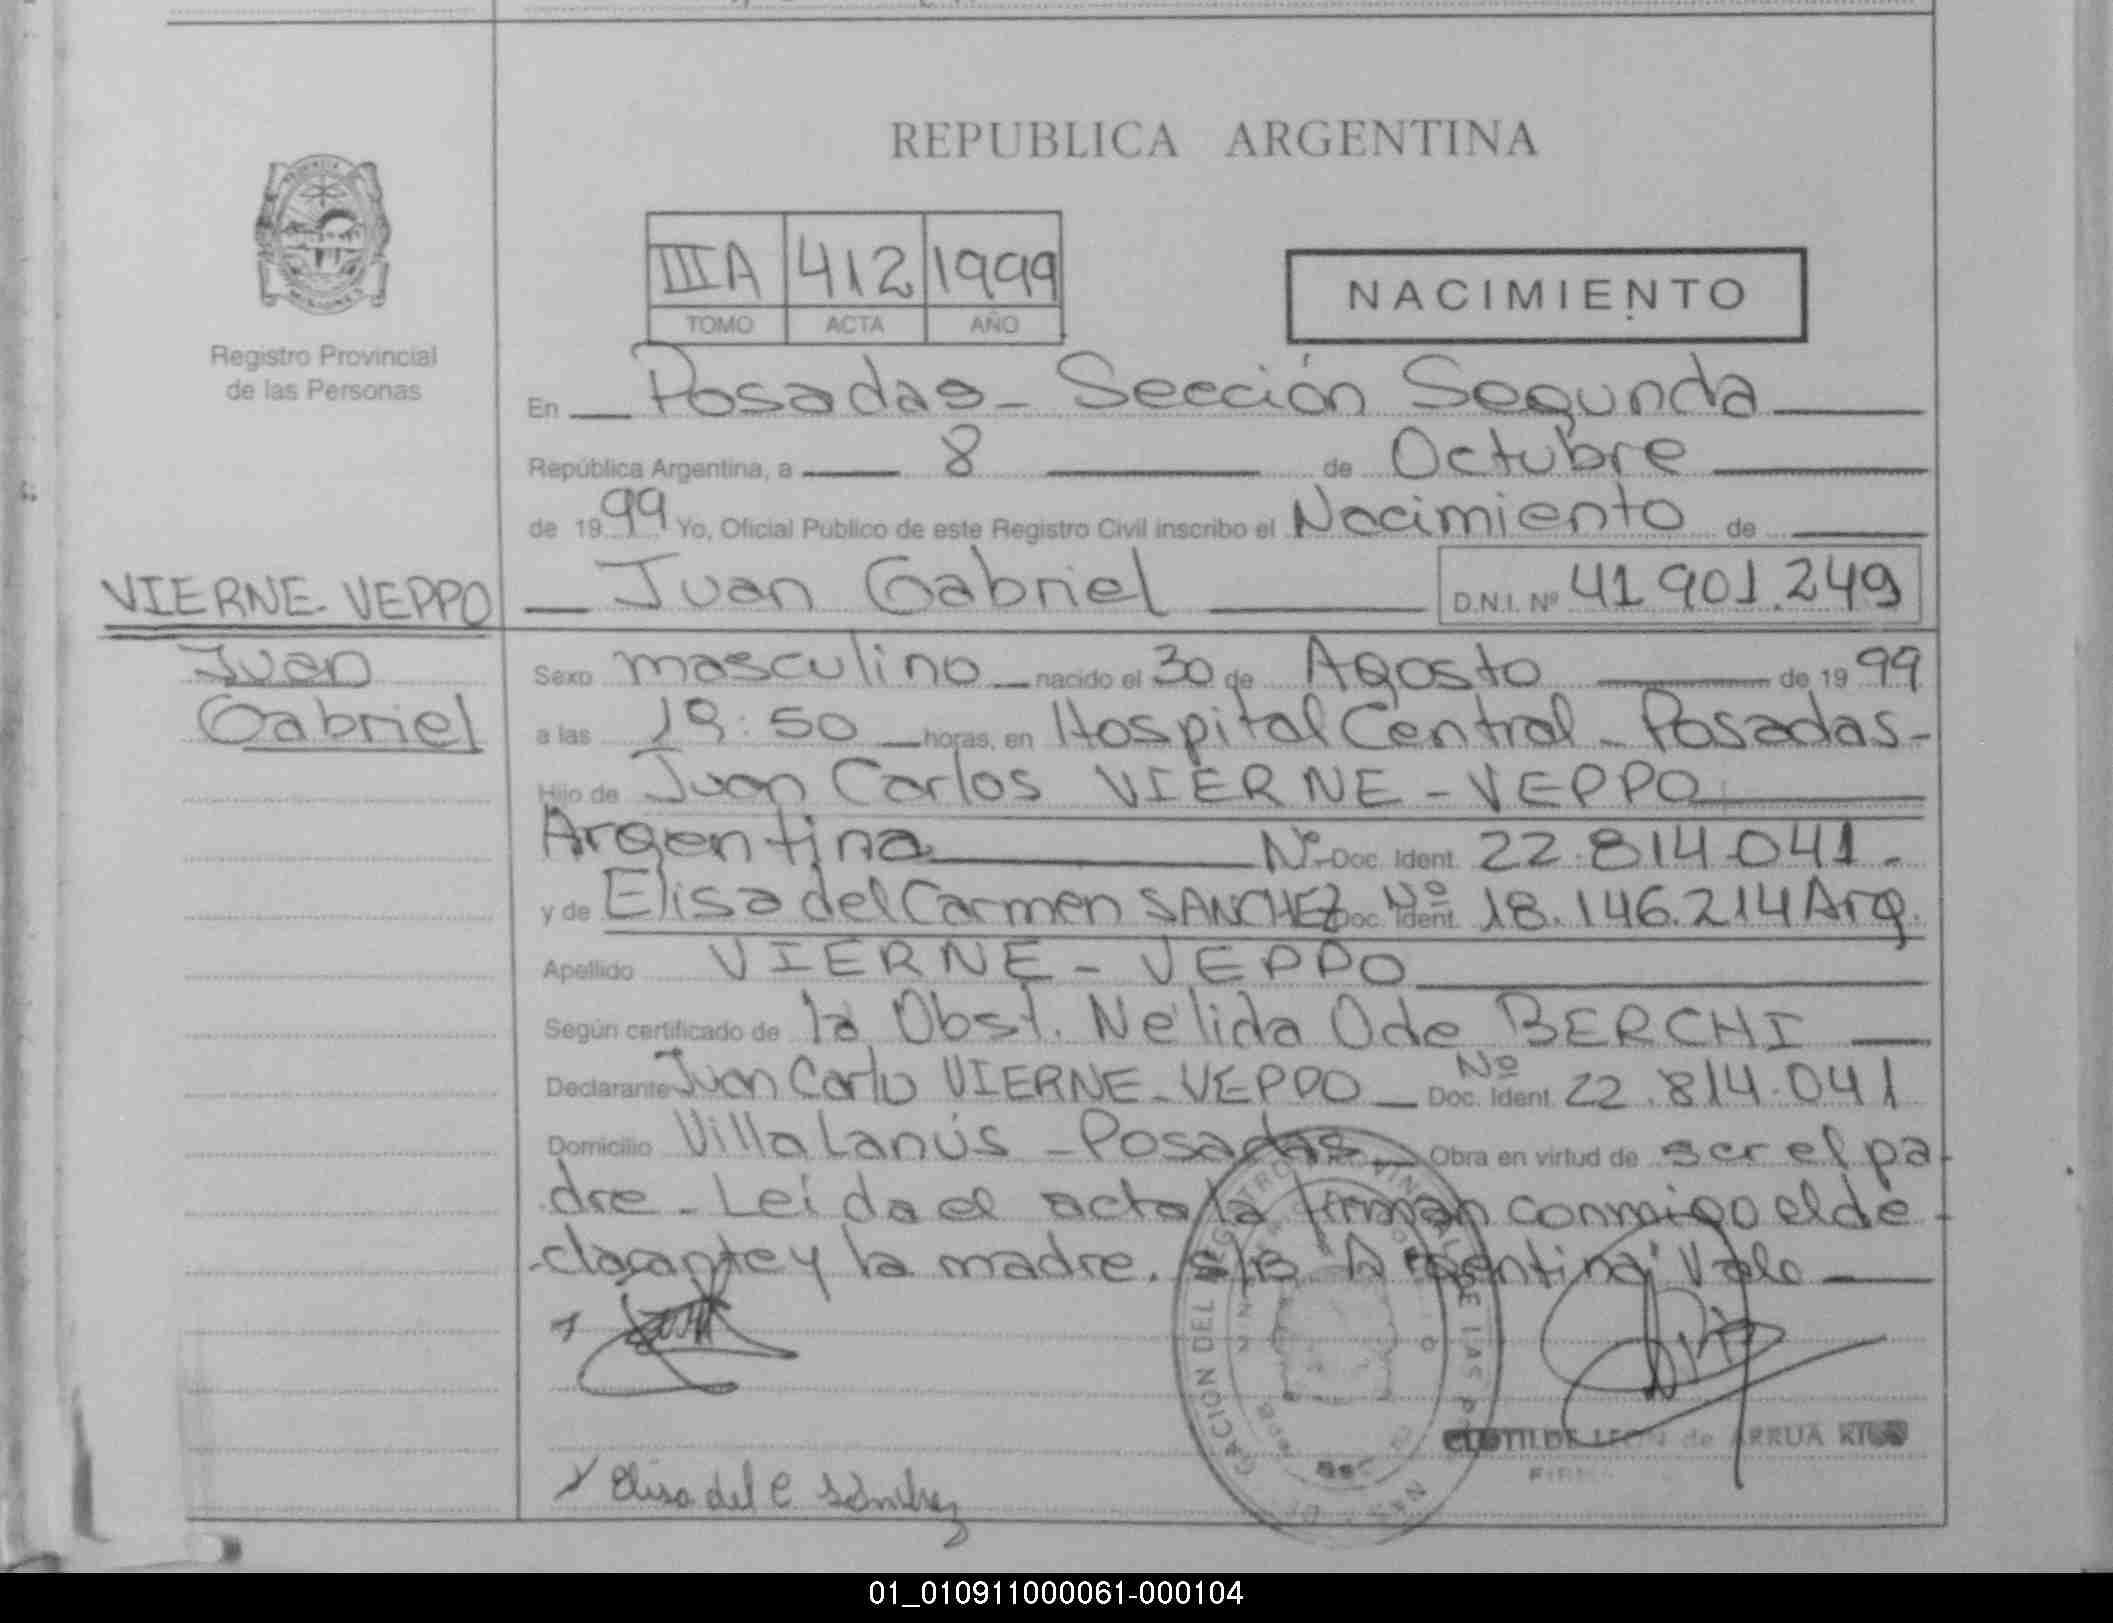 REPUBLICA ARGENTINA
IIIA 412 1999
TOMO ACTA AÑO
NACIMIENTO
Registro Provincial
de las Personas
En Posadas - Sección Segunda
República Argentina, a 8 de Octubre
de 1999 Yo, Oficial Público de este Registro Civil inscribo el Nacimiento de
Juan Gabriel D.N.I. Nº 41.901.249
VIERNE-VEPPO
Juan
Gabriel
Sexo masculino nacido el 30 de Agosto de 1999
a las 19:50 horas, en Hospital Central - Posadas-
Hijo de Juan Carlos VIERNE - VEPPO
Argentina Nº Doc. Ident. 22.814.041.-
y de Elisa del Carmen SANCHEZ Nº Doc. Ident. 18.146.214 Arg.
Apellido VIERNE - VEPPO
Según certificado de la Obst. Nélida Ode BERCHI
Declarante Juan Carlos VIERNE-VEPPO Nº Doc. Ident. 22.814.041
Domicilio Villa Lanús - Posadas Obra en virtud de ser el pa
dre - Leída el acta la firman conmigo el de
clarante y la madre. S/B "Argentina" Vale
Elisa del C Sánchez
CLOTILDE LEON de ARRUA
01_010911000061-000104